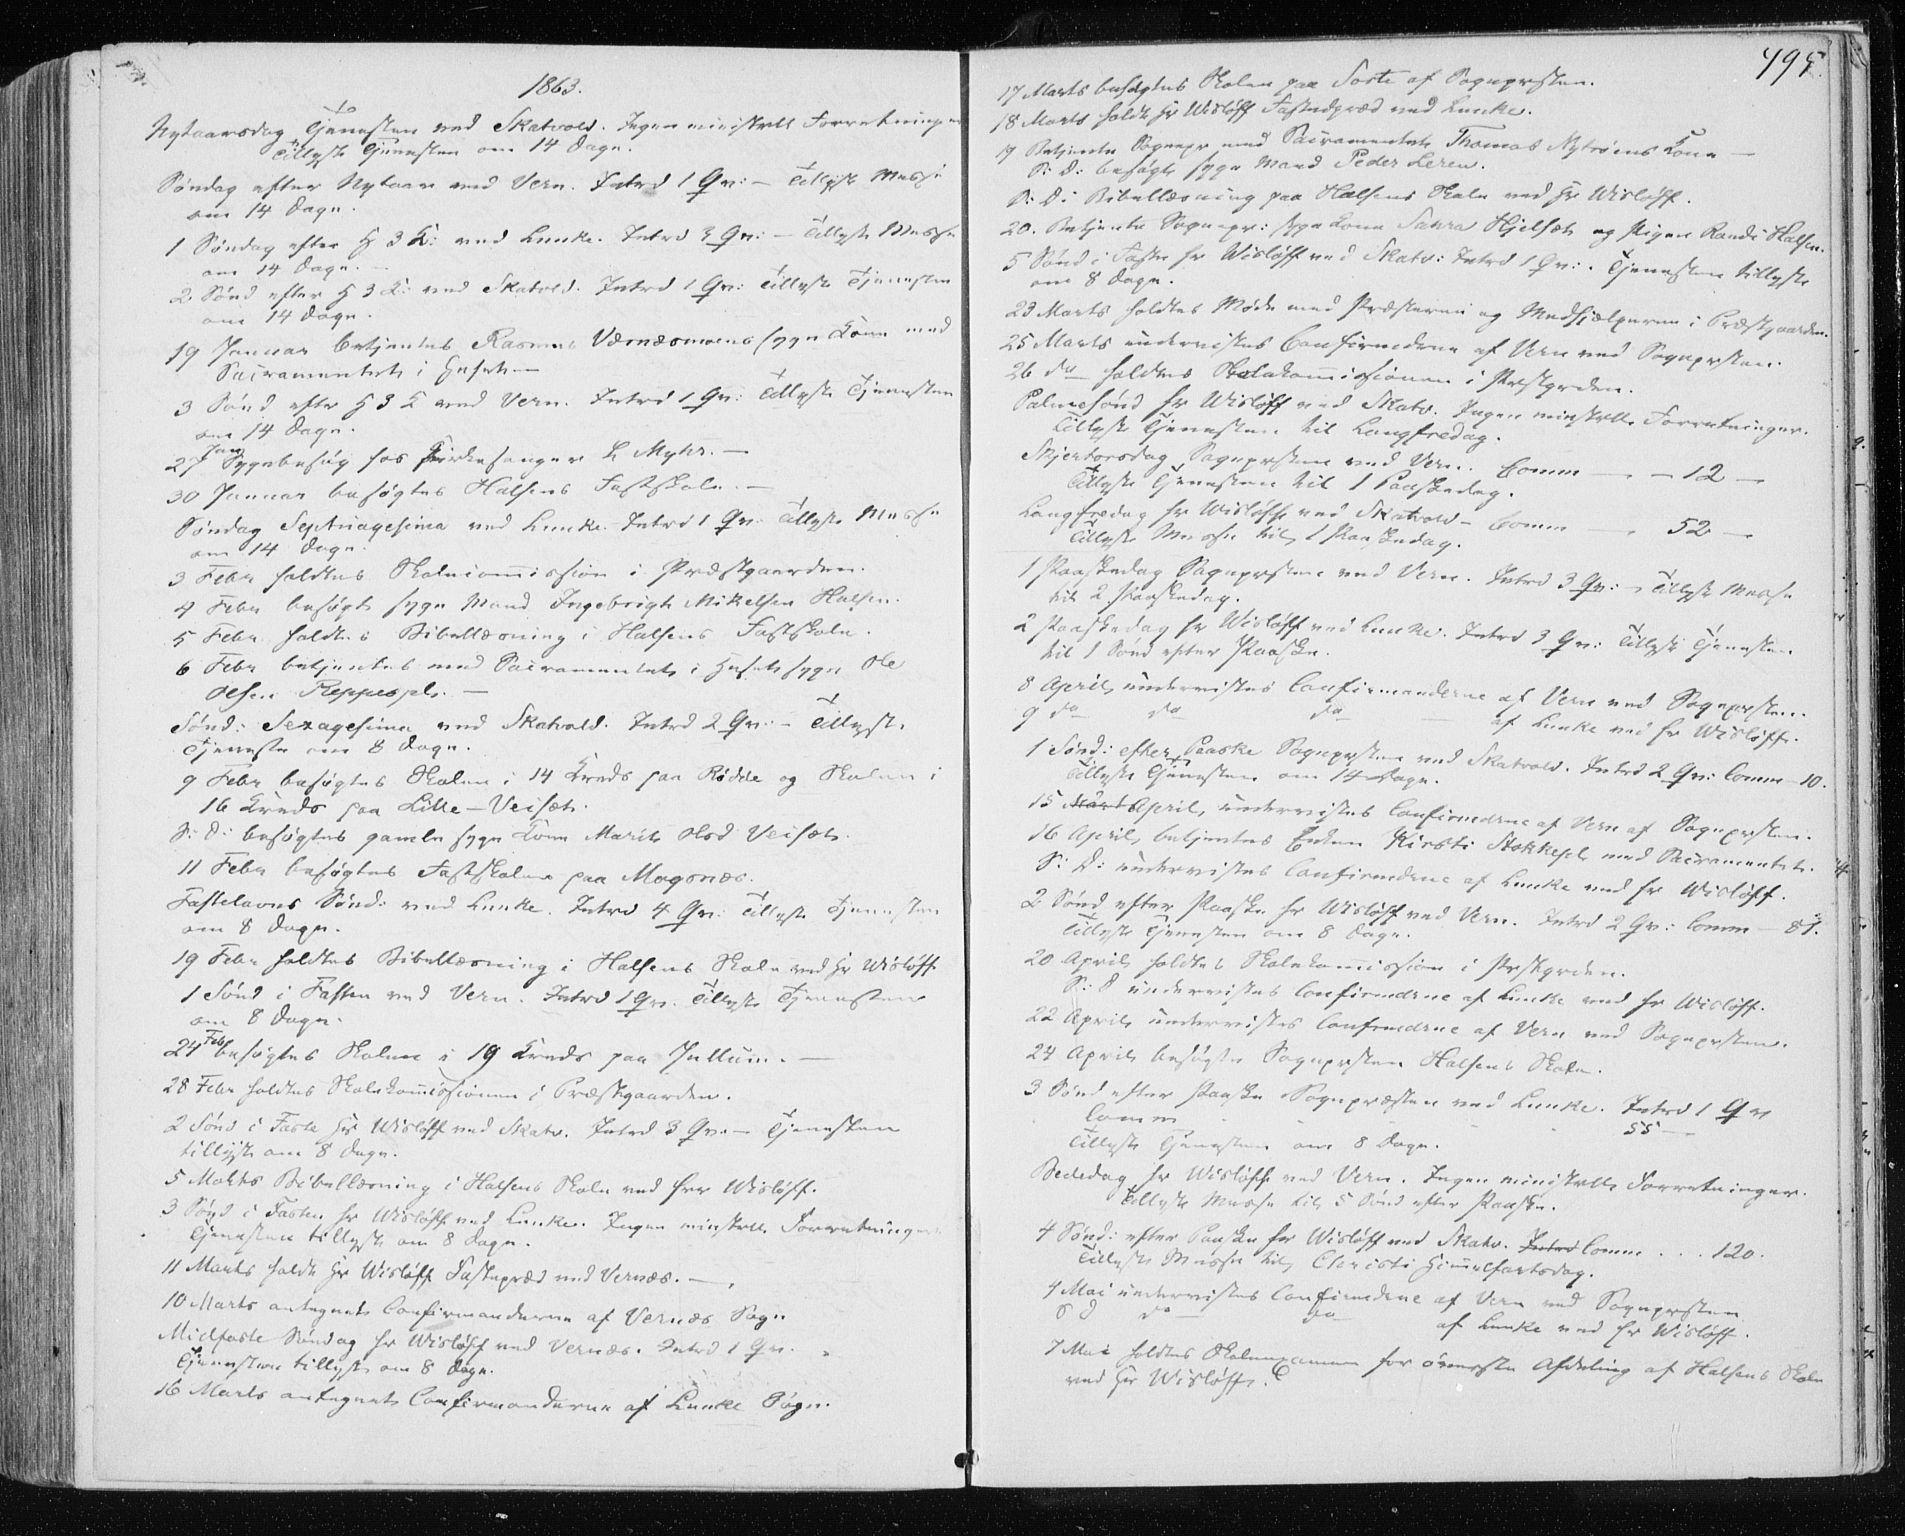 1863.
Nytaarsdag Tjenesten ved Skatvold. Ingen ministrll Forretninger
Tillyst Tjenesten om 14 Dage.
Søndag efter Nytaar ved Vern. Introd 1 Qv: – Tillyst Messe
om 14 Dage.
1 Søndag efter H 3 K: ved Lunke. Introd 3 Qv: – Tillyst Messe
om 14 Dage. –
2 Sønd efter H 3 K: ved Skatvold. Introd 1 Qv: Tillyst Tjenesten
om 14 Dage.
19 Januar betjentes Rasmus Værnæsmoens syge Kone med
Sacramentet i Huset. –
3 Sønd efter H 3 K ved Vern. Introd 1 Qv: Tillyst Tjenesten
om 14 Dage.
27 Jan Sygebesøg hos Kirkesanger L Myhr. –
30 Januar besøgtes Halsens Fastskole. –
Søndag Septuagesima ved Lunke. Introd 1 Qv: Tillyst Messe
om 14 Dage.
3 Febr holdtes Skolecommission i Præstgaarden.
4 Febr besøgt syge Mand Ingebrigt Mikelsen Halsen.
5 Febr holdtes Bibellæsning i Halsens Fastskole.
6 Febr betjentes med Sacramentet i Huset syge Ole
Olsen Reppespl. –
Sønd: Sexagesima ved Skatvold. Introd 2 Qv: – Tillyst
Tjeneste om 8 Dage.
9 Febr besøgtes Skolen i 14 Kreds paa Rødde og Skolen i
16 Kreds paa Lille-Veiset.
S: D: besøgtes gamle syge Kone Marit Olsd Veiset.
11 Febr besøgtes Fastskolen paa Mogsnæs.
Fastelavns Sønd: ved Lunke. Introd 4 Qv: Tillyst Tjenesten
om 8 Dage.
19 Febr holdtes Bibellæsning i Halsens Skole ved Hr Wisløff
1 Sønd i Fasten ved Vern. Introd 1 Qv. Tillyst Tjenesten
om 8 Dage.
24 Feb besøgtes Skolen i 19 Kreds paa Jullum. –
28 Febr holdtes Skolekommissionen i Præstgaarden.
2 Sønd i Faste Hr Wisløff ved Skatv. Introd 3 Qv. – Tjenesten
tillyst om 8 Dage.
5 Mahts Bibellæsning i Halsens Skole ved Herr Wisløff.
3 Sønd i Fasten Hr Wisløff ved Lunke. Ingen minstrll Forretninger
Tjenesten tillyst om 8 Dage.
11 Marts holdt Hr Wisløff Fastepræd ved Vernæs. –
10 Marts antegnet Confirmanderne af Vernæs Sogn
Midfaste Søndag Hr Wisløff ved Vernæs. Introd 1 Qv.
Tjenesten tillyst om 8 Dage.
16 Marts antegnet Confirmanderne af Lunke Sogn.
495.
17 Marts besøgtes Skolen paa Soste af Sognprsten.
18 Marts holdt Hr Wisløff Fastepræd ved Lunke.
19 Betjente Sognepr med Sacramentet Thomas Nytrøens Kone –
S: D: besøgt syge Mand Peder Leren.
S: D: Bibellæsning paa Halsens Skole ved Hr Wisløff.
20. Betjente Sognepr: syge Kone Sahra Hjelset og Pigen Randi Halsen.
5 Sønd i Faste Hr Wisløff ved Skatv: Introd 1 Qv: Tjenesten tillyst
om 8 Dage.
23 Marts holdtes Møde med Præsterne og Medhjælperne i Præstgaarden.
25 Marts undervistes Confirmderne af Vern ved Sognprsten.
26 do holdtes Skolekommissionen i Prstgrden.
Palmesønd Hr Wisløff ved Skatv. Ingen minstrlle Forretninger.
Tillyst Tjenesten til Langfredag.
Skjertorsdag Sognprsten ved Vern. Comm – – 12 –
Tillyst Tjenesten til 1 Paaskedag.
Langfredag Hr Wisløff ved Skatvold – Comm – 52 –
Tillyst Messe til 1 Paaskedag.
1 Paaskedag Sognprsten ved Vern. Introd 3 Qv: – Tillyst Messe
til 2 Paaskedag.
2 Paaskedag Hr Wisløff ved Lunke. Introd 3 Qv: Tillyst Tjenesten
til 1 Sønd efter Paaske.
8 April undervistes Confirmanderne af Vern ved Sognprsten.
9 do do do af Lunke ved Hr Wisløff.
1 Sønd: efter Paaske Sognprsten ved Skatvold. Introd 2 Qv: Comm – 10.
Tillyst Tjenesten om 14 Dage.
15 Marts April, undervistes Confirmdrne af Vern af Sognprsten.
16 April, betjentes Enken Kirsti Stokkespl med Sacramentet.
S: D: undervistes Confirmdrne af Lunke ved Hr Wisløff.
2 Sønd efter Paaske Hr Wisløff ved Vern. Introd 2 Qv: Comm – 87.
Tillyst Tjenesten om 8 Dage.
20 April holdtes Skolekommission i Prstgrden.
S: D undervistes Confirmdrne af Lunke ved Hr Wisløff.
22 April undervistes Confrmdrne af Vern ved Sognprsten.
24 April besøgte Sognprsten Halsens Skole.
3 Sønd efter Paaske Sognpræsten ved Lunke. Introd 1 Qv
Comm 55 –
Tillyst Tjenesten om 8 Dage.
Bededag Hr Wisløff ved Vern. Ingen ministrlle Forretninger.
Tillyst Messe til 5 Sønd efter Paaske.
4 Sønd: efter Paaske Hr Wisløff ved Skatv. Introd Comm . . . 120.
Tillyst Messe til Christi Himmelfartsdag.
4 Mai undervistes Confirmdrne af Vern ved Sognprsten
S D do – do af Lunke ved Hr Wisløff.
7 Mai holdtes Skoleexamen for øverste Afdeling af Halsens Skole
ved Hr Wisløff.